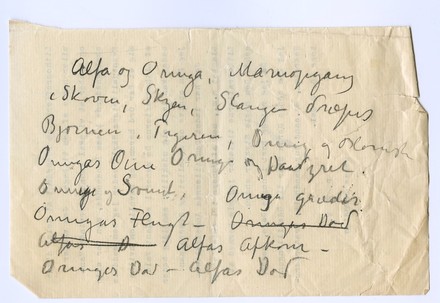 Alfa og Omega, Maaneopgang
i Skoven, Skyen, Slangen dræpes
Bjørnen, Tigeren, Omega og Blomsten
Omegas Øine Omega og Daadyret.
Omega og Svinet, Omega græder
Omegas Flugt – Omegas Død
Alfas D Alfas Afkom –
Omegas Død – Alfas Død